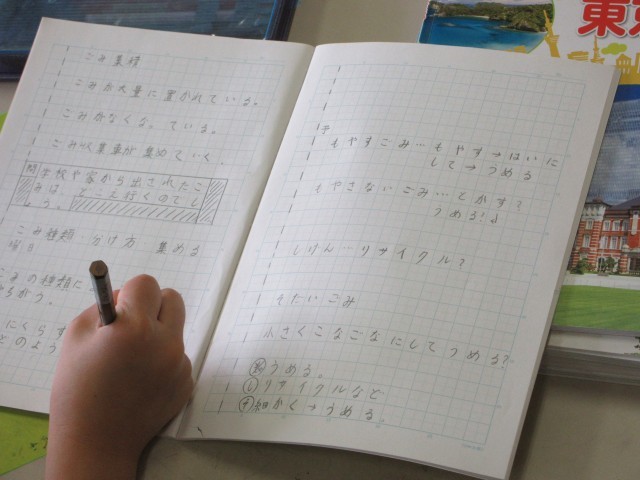 ごみ置場
ごみが大量に置かれている。
ごみがなくなっている。
ごみ収集車が集めていく
問 学校や家から出されたご
みは、どこへ行くのでし
ょう。
ごみ種類 分け方 集める
曜日
ごみの種類に
ちがう。
にくらす
どのよう
予
もやすごみ…もやす→はいに
して→うめる
もやさないごみ…とかす?
うめる!
しげん…リサイクル?
そだいごみ
小さくこなごなにしてうめる?
うめる。
し リサイクルなど
そ 細かく→うめる。
東